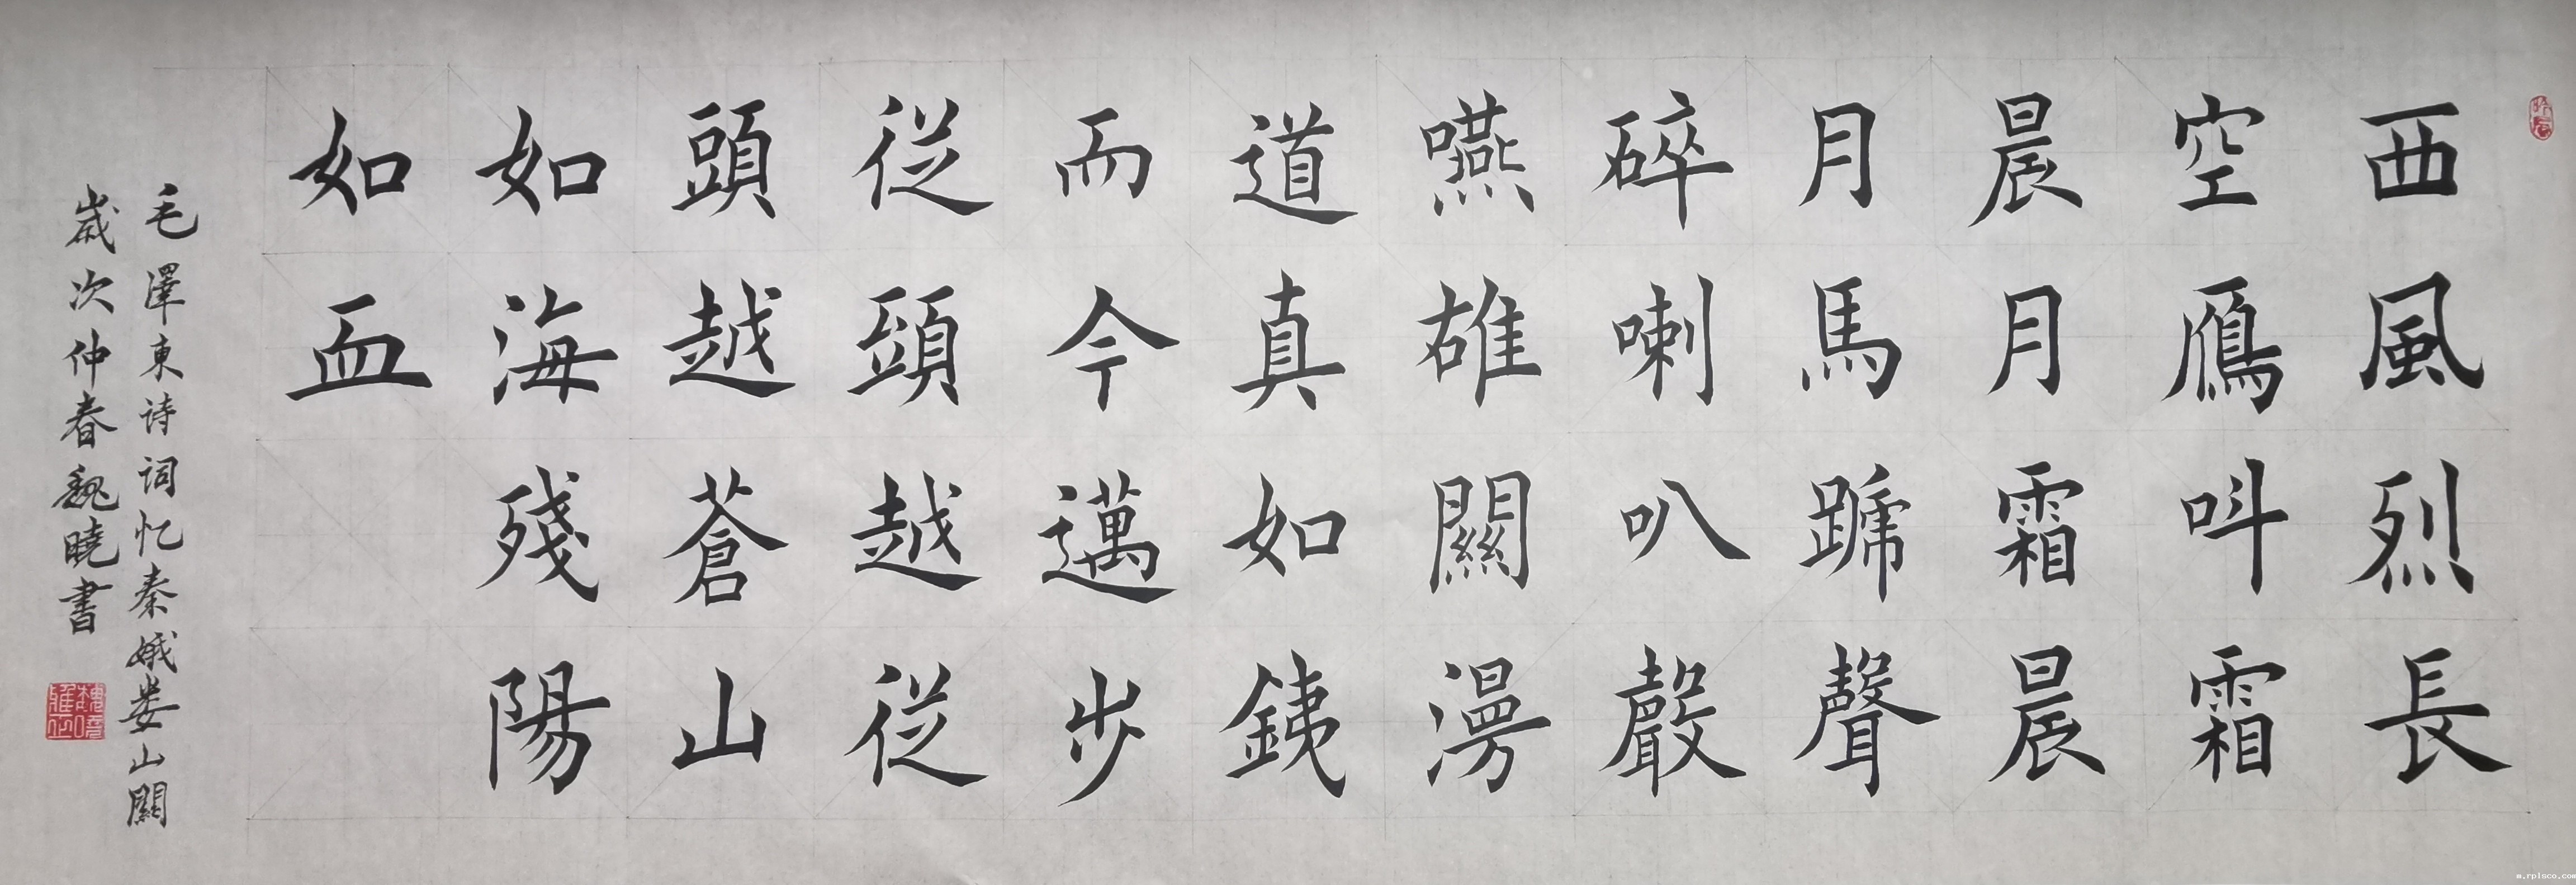 西風烈長
空鴈呌霜
晨月霜晨
月馬蹄聲
碎喇叭聲
嚥雄關漫
道真如銕
而今邁步
従頭越従
頭越蒼山
如海殘陽
如血
毛澤東诗词忆秦娥娄山關
歲次仲春魏曉書
m.rplsco.com